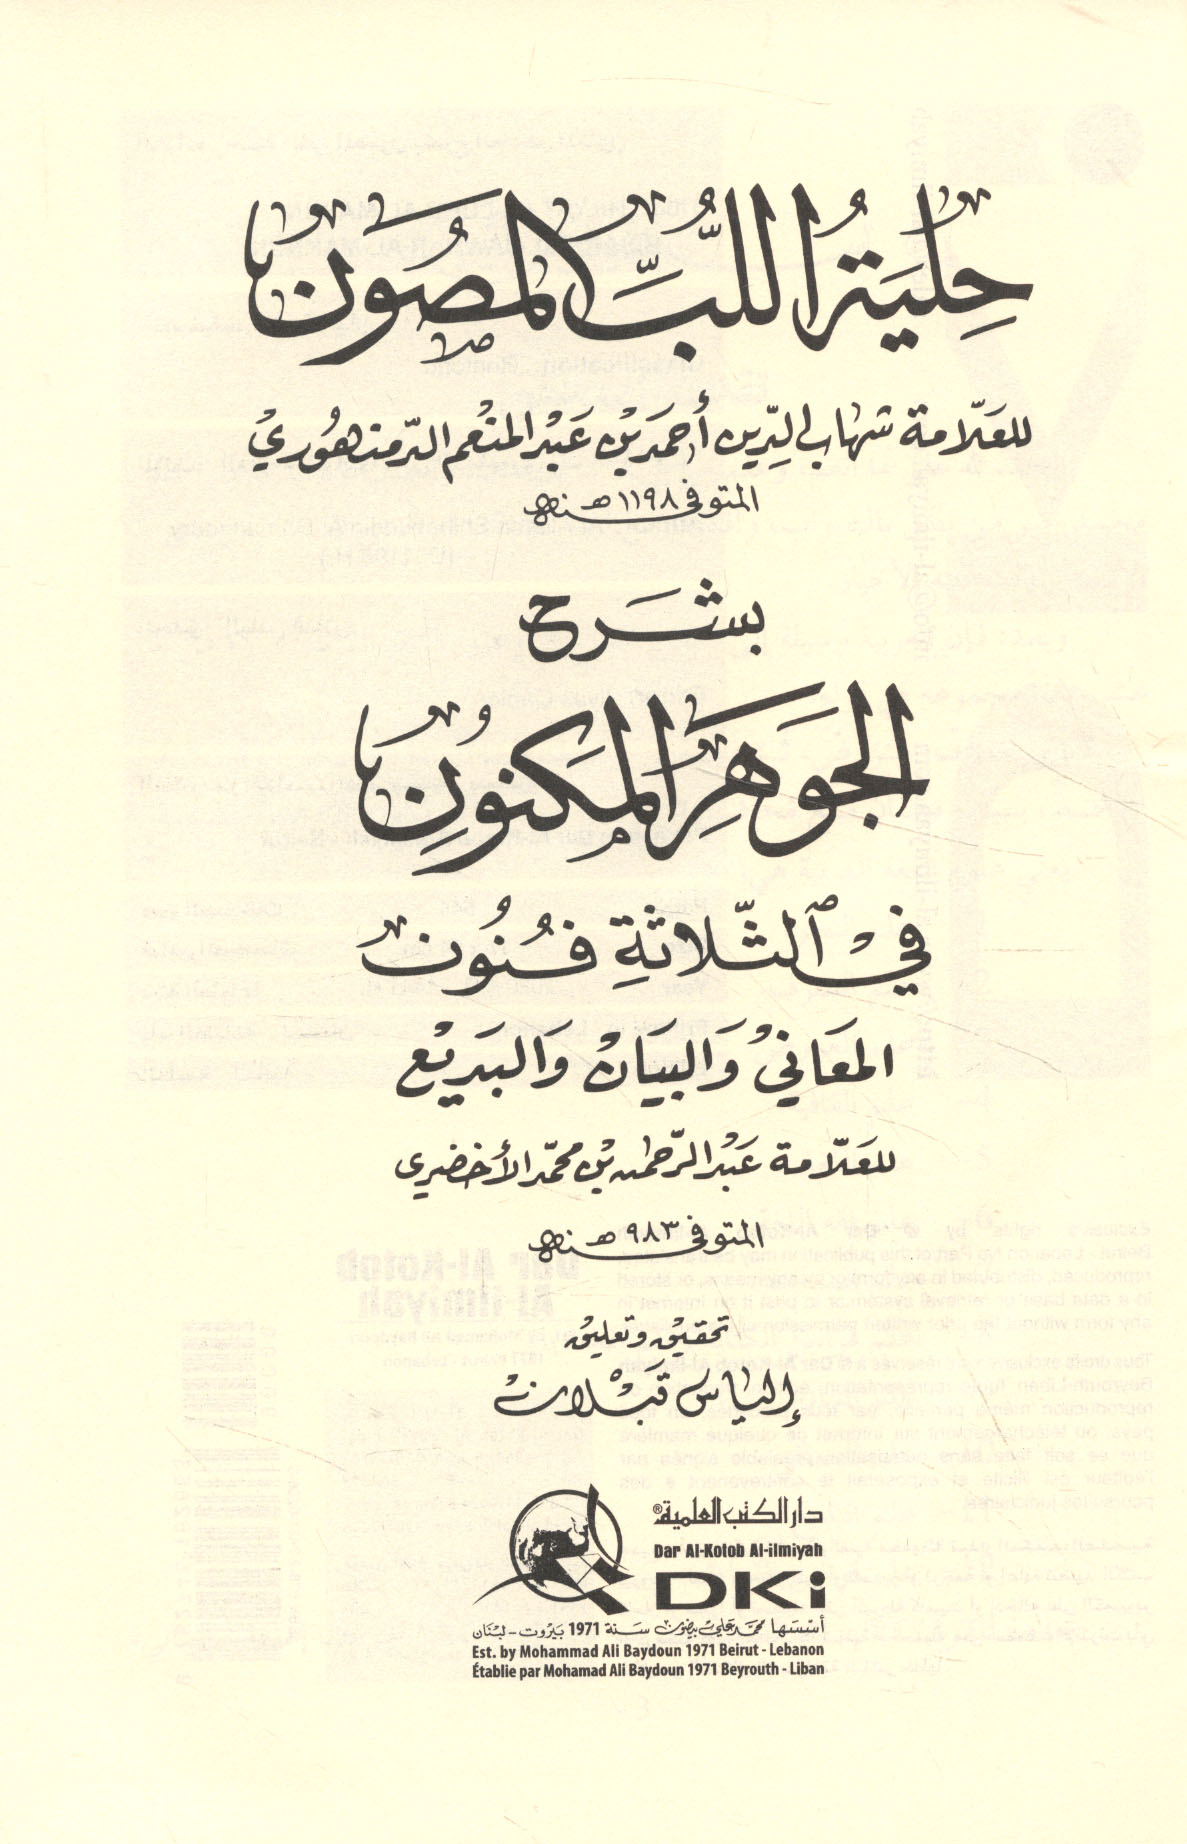 حِليَةُ اللُّبِّ المَصُونِ
للعَلّامة شهاب الدِّين أحمَد بْن عَبْد المنْعم الدّمنهُوريُ
المتوفى ١١٩٨ هـ سنة
بِشَرح
الجَوهَرِ المَكنُونِ
فيْ الثّلاثةِ فنُون
المعَانيْ وَالبيَانْ وَالبَديْع
للعَلّامة عَبْد الرّحمٰن بْن محمّد الأخضري
المتوفى ٩٨٣ هـ سنة
تحقيق وتعليق
إلياس قَبْلان
دار الكتب العلمية®
Dar Al-Kotob Al-ilmiyah
DKi
أسّسَها محمّد علي بيضون سنة 1971 بَيروت - لبنان
Est. by Mohammad Ali Baydoun 1971 Beirut - Lebanon
Établie par Mohamad Ali Baydoun 1971 Beyrouth - Liban